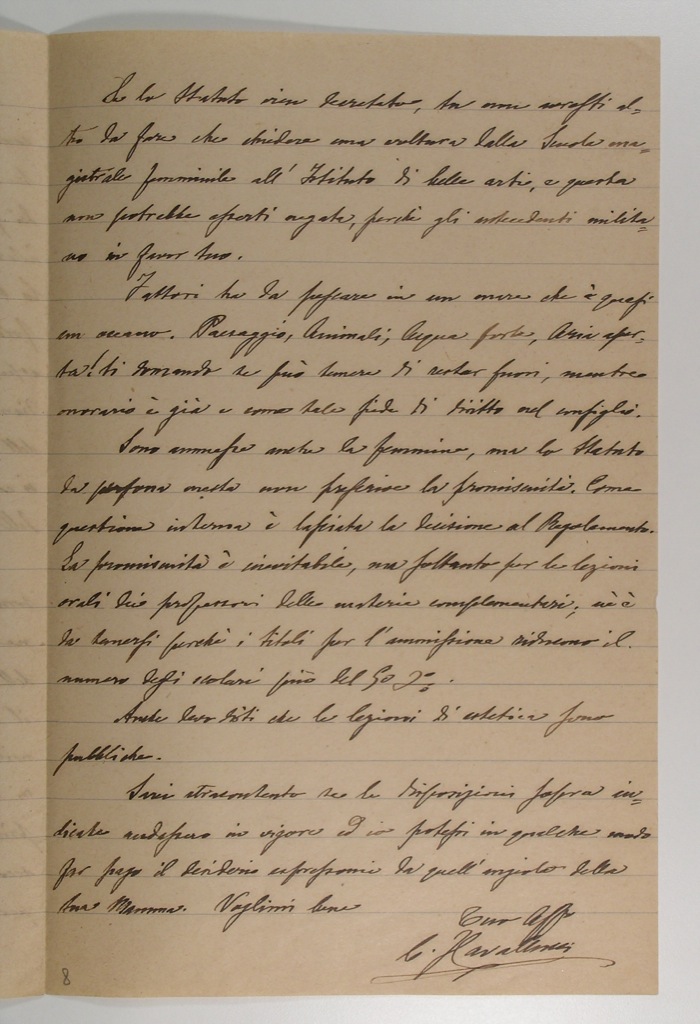 Se lo Statuto vien decretato, tu non avresti al=
tro da fare che chiedere una voltura dalla Scuola ma=
gistrale femminile all' Istituto di belle arti, e questa
non potrebbe esserti negata, perchè gli antecedenti milita=
no in favor tuo.
Fattori ha da pescare in un mare che è quasi
un oceano. Paesaggio, Animali, Acqua forte, Aria aper=
ta! ti domando se può temere di restar fuori, mentre
onorario è già e come tale siede di diritto nel consiglio.
Sono ammesse anche le femmine, ma lo Statuto
da persona onesta non prescrive la promiscuità. Come
questione interna è lasciata la decisione al Regolamento.
La promiscuità è inevitabile, ma soltanto per le lezioni
orali dei professori delle materie complementari; nè è
da temersi perchè i titoli per l'ammissione riducono il
numero degli scolari più del 50 %.
Anche devo dirti che le lezioni di estetica sono
pubbliche.
Sarei stracontento se le disposizioni sopra in=
dicate andassero in vigore ed io potessi in qualche modo
far pago il desiderio espressomi da quell'angiolo della
tua Mamma. Voglimi bene
Tuo Aff
C.
8